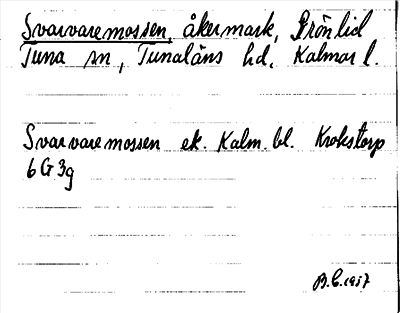 Svarvaremossen, åkermark, Prönlid
Tuna sn, Tunaläns hd, Kalmar l.
Svarvaremossen ek. Kalm. bl. Krokstorp
6G3g
B.C. 1937